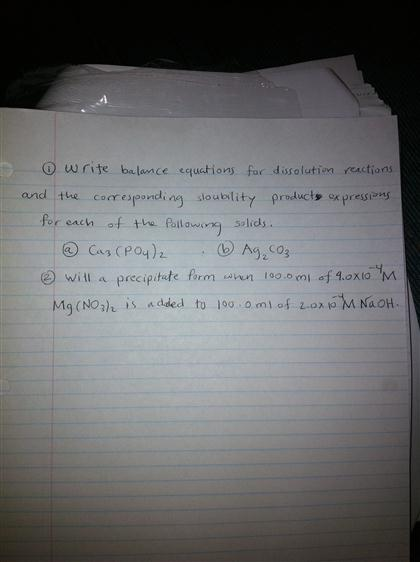 ① Write balance equations for dissolution reactions
and the corresponding sloubility products expressions
for each of the following solids.
ⓐ Ca3(PO4)2 . ⓑ Ag2CO3
② Will a precipitate form when 100.0 ml of 4.0x10⁻⁴M
Mg(NO3)2 is added to 100.0 ml of 2.0x10⁻⁴M NaOH.